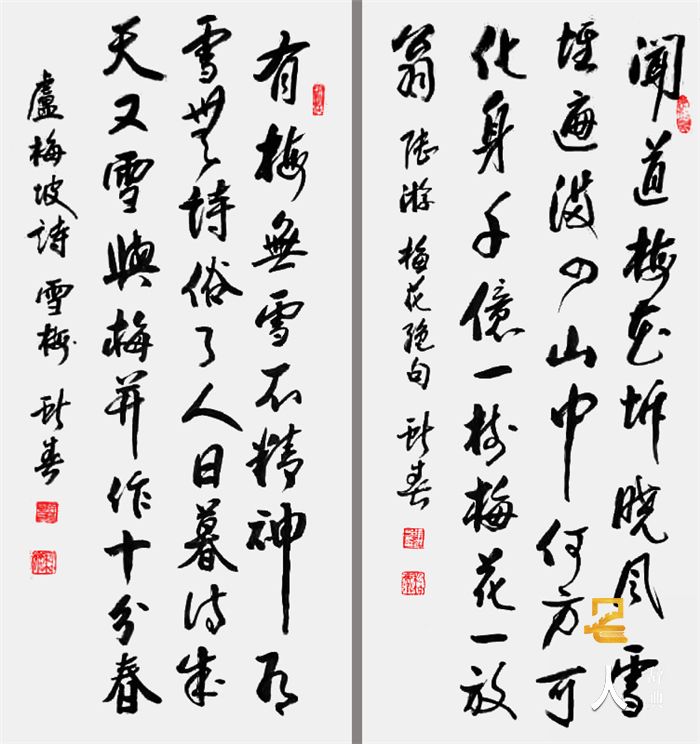 聞道梅花坼曉風雪
堆遍滿四山中何方可
化身千億一樹梅花一放
翁 陸游 梅花絕句 春
有梅無雪不精神有
雪無詩俗了人日暮詩成
天又雪與梅并作十分春
盧梅坡詩 雪梅 春